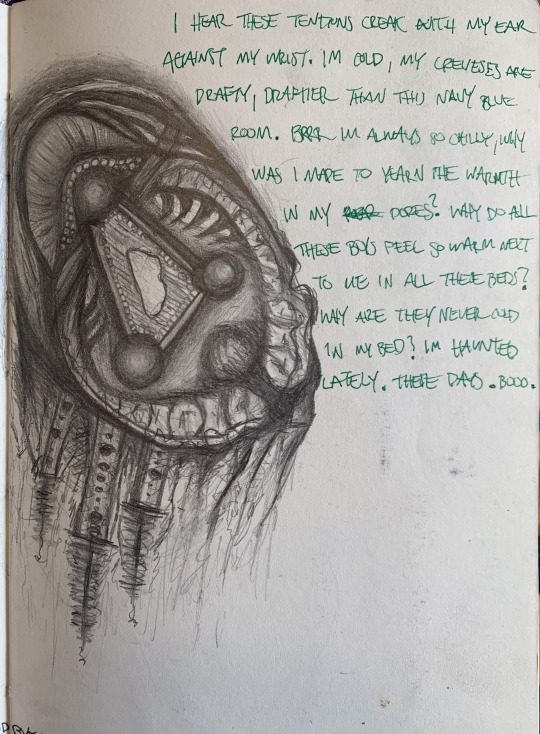 I HEAR THESE TENDONS CREAK WITH MY EAR
AGAINST MY WRIST. IM COLD, MY CREVESES ARE
DRAFTY, DRAFTIER THAN THIS NAVY BLUE
ROOM. BRRR IM ALWAYS SO CHILLY, WHY
WAS I MADE TO YEARN THE WARMTH
IN MY PORES? WHY DO ALL
THESE BOYS FEEL SO WARM NEXT
TO ME IN ALL THESE BEDS?
WHY ARE THEY NEVER COLD
IN MY BED? IM HAUNTED
LATELY. THESE DAYS. BOOO.